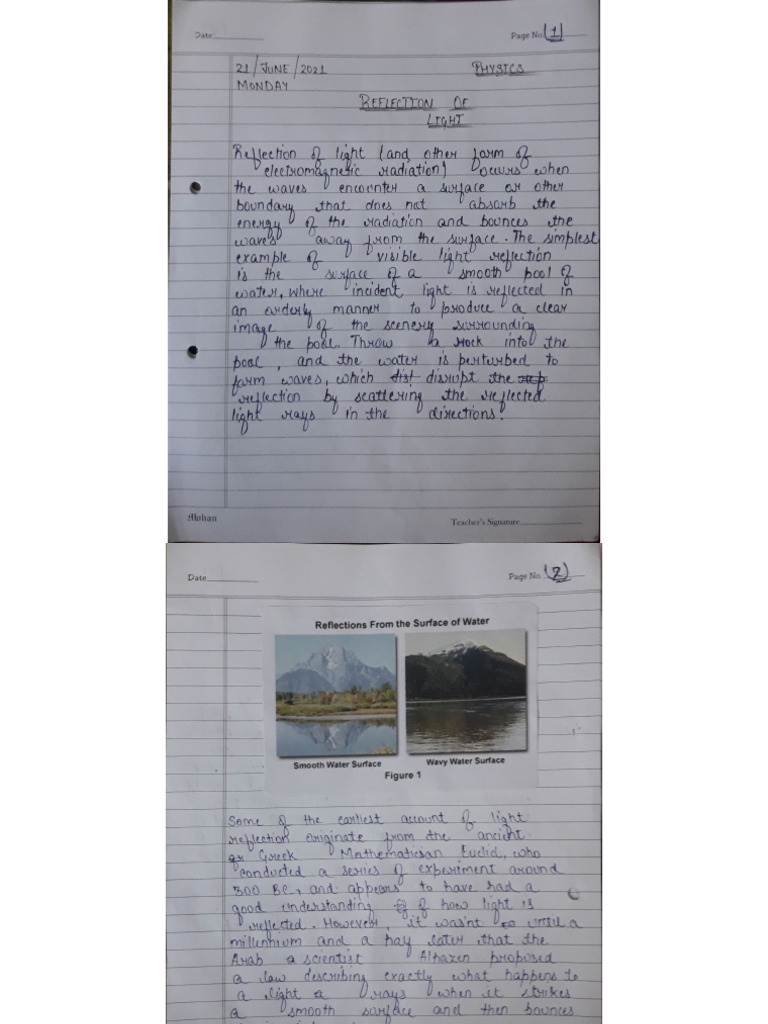 Date
Page No. (1)
21/JUNE/2021 PHYSICS
MONDAY
REFLECTION OF
LIGHT
Reflection of light (and other form of
electromagnetic radiation) occurs when
the waves encounter a surface or other
boundary that does not absorb the
energy of the radiation and bounces the
waves away from the surface. The simplest
example of visible light reflection
is the surface of a smooth pool of
water, where incident light is reflected in
an orderly manner to produce a clear
image of the scenery surrounding
the pool. Throw a rock into the
pool, and the water is perturbed to
form waves, which dist disrupt the
reflection by scattering the reflected
light rays in the directions.
Mohan
Teacher's Signature
Date
Page No. (2)
Reflections From the Surface of Water
Smooth Water Surface
Wavy Water Surface
Figure 1
Some of the earliest account of light
reflection originate from the ancient
gr Greek Mathematician Euclid, who
conducted a series of experiment around
300 BC, and appears to have had a
good understanding of how light is
reflected. However, it wasn't until a
millennium and a hay later that the
Arab a scientist Alhazen proposed
a law describing exactly what happens to
a light a rays when it strikes
a smooth surface and then bounces